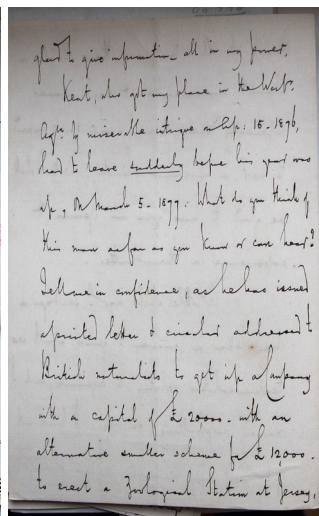 glad to give information all in my power.
Kent, who got my place in the Westr.
Aqm. by miserable intrigue on Sep: 15-1876,
had to leave suddenly before his year was
up, on March 5-1877. What do you think of
this man as far as you know or can hear?
Tell me in confidence, as he has issued
a printed letter & circular addressed to
British naturalists to get up a Company
with a capital of £20000. with an
alternative smaller scheme for £12,000.
to erect a Zoological Station at Jersey,